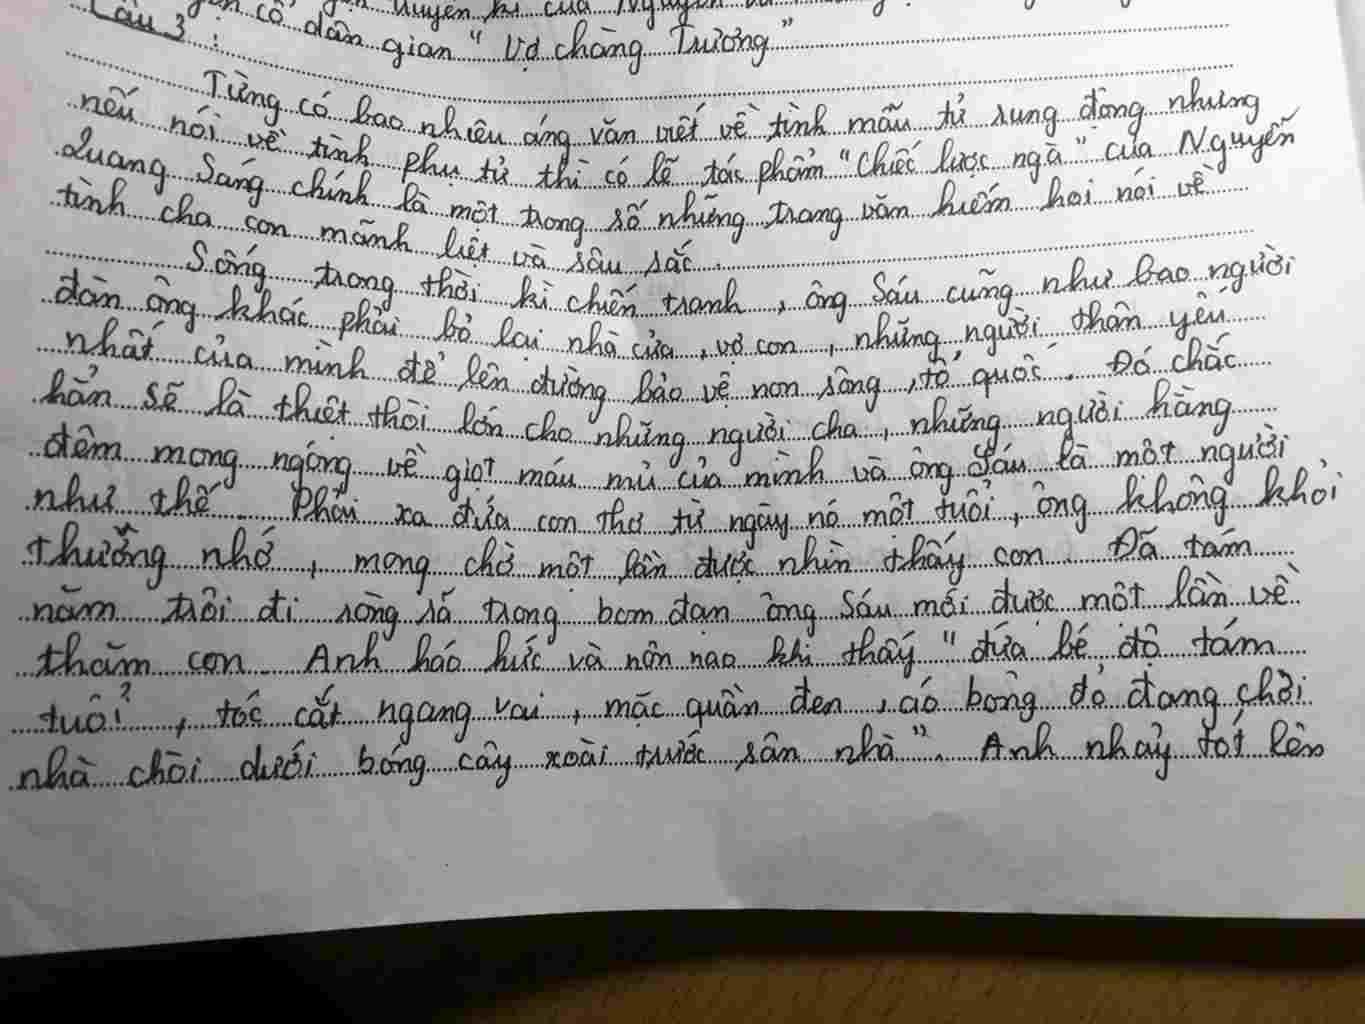 truyện kì của
Câu 3: cổ dân gian “Vợ chàng Trương”
Từng có bao nhiêu áng văn viết về tình mẫu tử rung động nhưng
nếu nói về tình phụ tử thì có lẽ tác phẩm “Chiếc lược ngà” của Nguyễn
Quang Sáng chính là một trong số những trang văn hiếm hoi nói về
tình cha con mãnh liệt và sâu sắc.
Sống trong thời kì chiến tranh, ông Sáu cũng như bao người
đàn ông khác phải bỏ lại nhà cửa, vợ con, những người thân yêu
nhất của mình để lên đường bảo vệ non sông, tổ quốc. Đó chắc
hẳn sẽ là thiệt thòi lớn cho những người cha, những người hàng
đêm mong ngóng về giọt máu mủ của mình và ông Sáu là một người
như thế. Phải xa đứa con thơ từ ngày nó một tuổi, ông không khỏi
thương nhớ, mong chờ một lần được nhìn thấy con. Đã tám
năm trôi đi ròng rã trong bom đạn ông Sáu mới được một lần về
thăm con. Anh háo hức và nôn nao khi thấy “đứa bé độ tám
tuổi, tóc cắt ngang vai, mặc quần đen, áo bông đỏ đang chơi
nhà chòi dưới bóng cây xoài trước sân nhà”. Anh nhảy tót lên